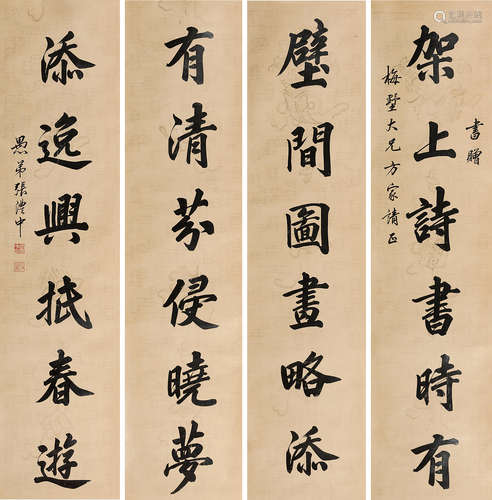 架上詩書時有
書贈
梅墅大兄方家請正
壁間圖畫略添
有清芬侵曉夢
添逸興抵春遊
愚弟張澧中